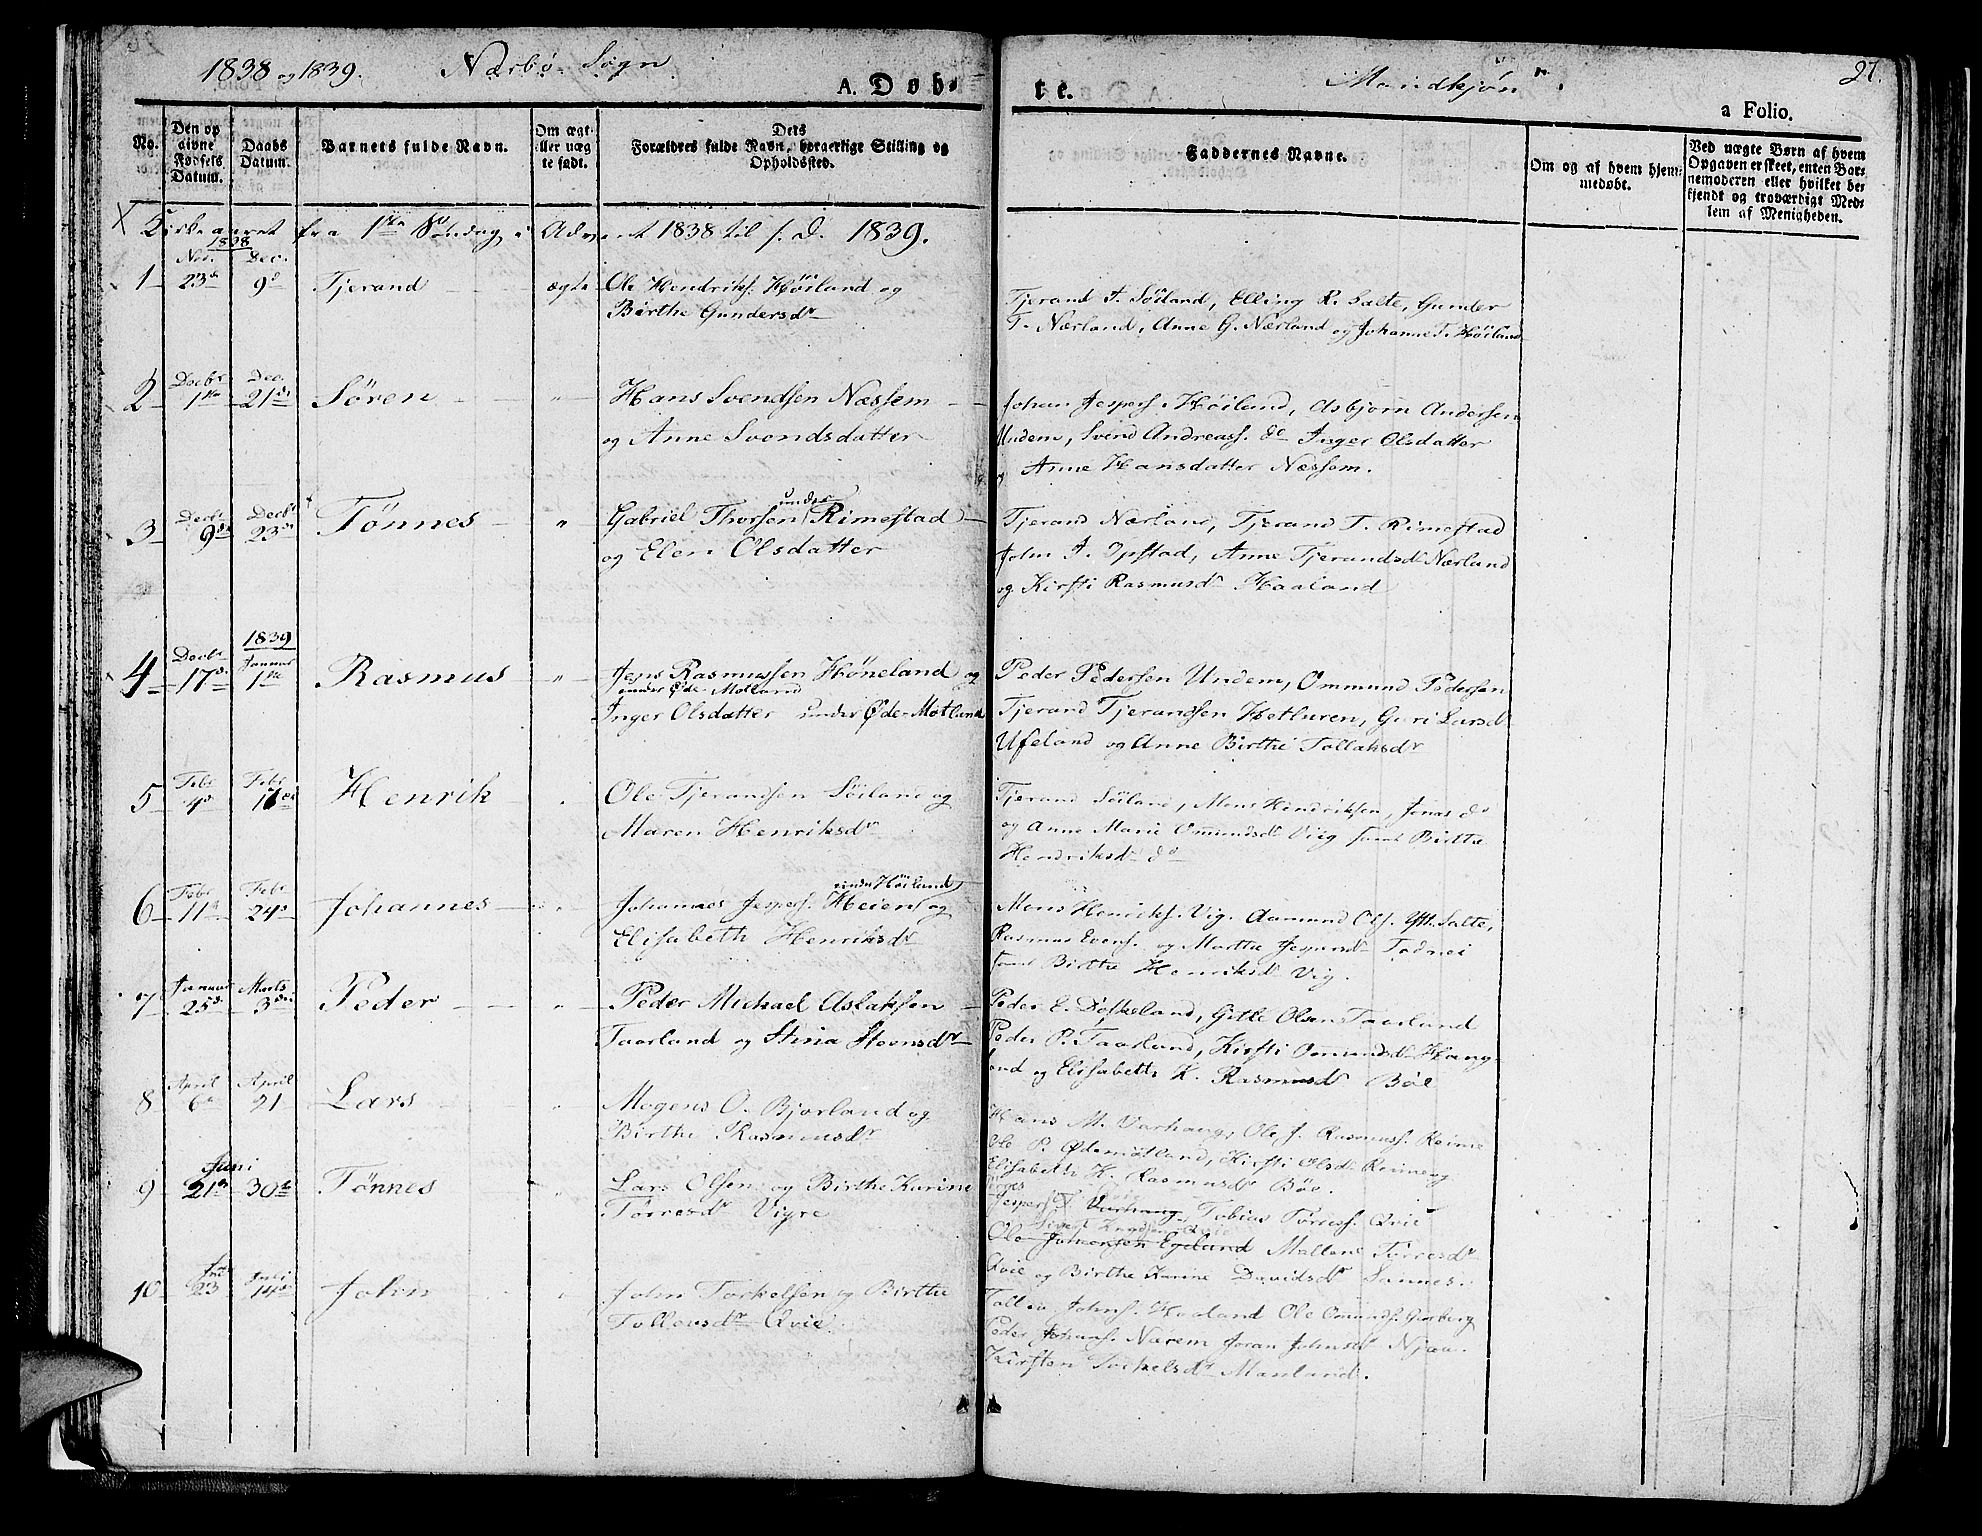 1838 og 1839. Nærbø Sogn
A. Døb-
te.
Mandkjøn
27.
a Folio.
No.
Den op
givne
Fødsels
Datum.
Daabs
Datum.
Barnets fulde Navn.
Om ægt-
eller uæg
te født.
Dets
Forældres fulde Navn, borgerlige Stilling og
Opholdssted.
Faddernes Navne.
Om og af hvem hjem-
medøbt.
Ved uægte Børn af hvem
Opgaven er skeet, enten Bar-
nemoderen eller hvilket be-
kjendt og troværdigt Med-
lem af Menigheden.
Kirkeaaret fra 1ste Søndag i Advent 1838 til s. D. 1839.
1838
1 Nov. 23d Dec. 9d Tjerand ægte Ole Hendriks. Høiland og
Birthe Gundersdr
Tjerand T. Söiland, Elling R. Salte, Gunder
T. Nærland, Anne G. Nærland og Johanne T. Höiland
2 Decbr 1ste Dec. 21de Søren " Hans Svendsen Næssem
og Anne Svendsdatter
Johan Jespers. Höiland, Asbjørn Andersen
Undem, Svend Andreass. do Inger Olsdatter
og Anne Hansdatter Næssem.
3 Decbr 9de Decbr 23de Tönnes " Gabriel Thorsen under Rimestad
og Elen Olsdatter
Tjerand Nærland, Tjerand T. Rimestad
John A. Opstad, Anne Tjerandsdr Nærland
og Kirsti Rasmusdr Haaland
4 Decbr 17de 1839 Januar 1ste Rasmus " Jens Rasmussen Höneland og
under Øde-Motland
Inger Olsdatter under Øde-Motland
Peder Pedersen Undem, Ommund Pedersen
Tjerand Tjerandsen Hetluren, Guri Larsd
Ufeland og Anne Birthe Tollaksdr
5 Febr 4d Febr Henrik " Ole Tjerandsen Söiland og
Maren Henriksdr
Tjerand Söiland, Mons Hendriksen, Jonas do
og Anne Marie Omundsdr Viig samt Birthe
Hendriksdr do
6 Febr 11d Febr 24d Johannes " Johannes Jespers. Heien og
under Höiland
Elisabeth Henriksdr
Mons Henriks. Vig. Aamund Ols. Ytt. Salte,
Rasmus Evens. og Marthe Jespersdr Todnei
samt Birthe Henriksdr Vig.
7 Januar 25de Marts 3die Peder " Peder Michael Aslaksen
Taarland og Stina Steensdr
Peder E. Døskeland, Gitle Olsen Taarland
Peder P. Taarland, Kirsti Ommundsdr Haug-
land og Elisabeth K. Rasmusdr Böe
8 April 6d April 21 Lars " Mogens O. Bjorland og
Birthe Rasmusdr
Hans M. Varhaug, Ole J. Rasmuss. Reime
Ole P. Ødemotland, Kirsti Olsdr Reime og
Elisabeth K. Rasmusdr Böe.
9 Juni 21d 30te Tönnes " Lars Olsen og Birthe Karine
Torresdr Vigre
Jesper T. Varhaug, Tobias Torress. Qvie
Sivert Knudsen Qvie
Ole Johansen Egeland Mallene Torresdr
Qvie og Birthe Karine Davidsdr Sannes.
10 Juni 23 Juli 14de John " John Torkelsen og Birthe
Tollevsdr Qvie.
Johns. Haaland Ole Omunds.
Peder Johans. Nærem Joran Johnsdr Njaa.
Kirsten